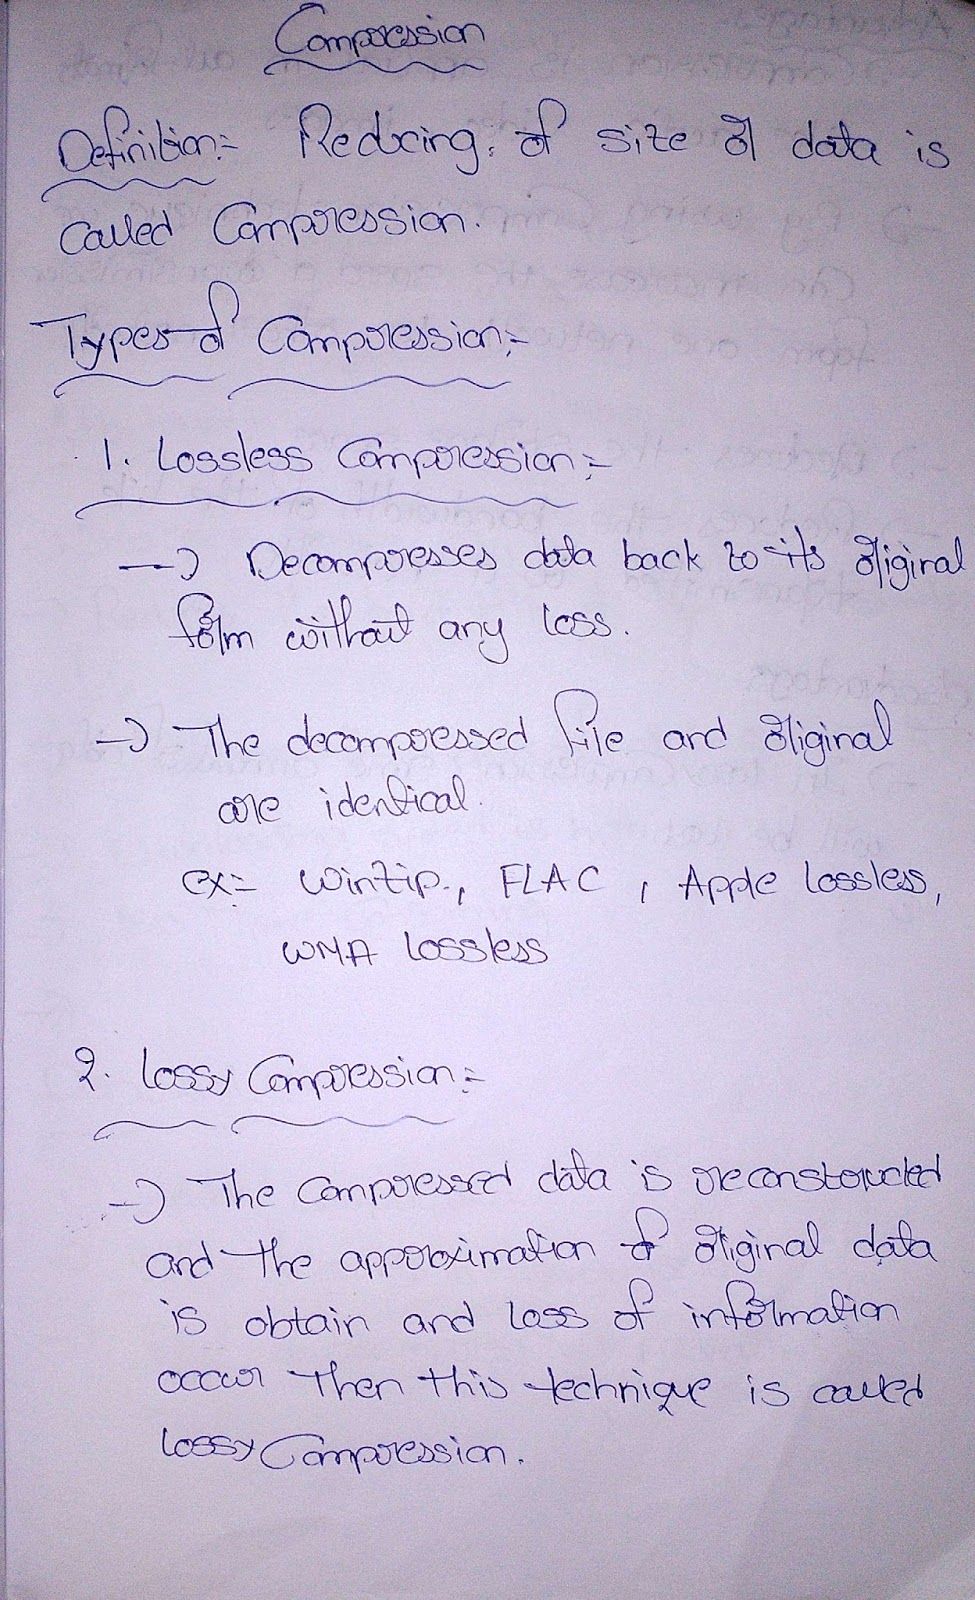 Compression
Definition:- Reducing of size of data is
called Compression.
Types of Compression:-
1. Lossless Compression:-
→ Decompresses data back to its original
form without any loss.
→ The decompressed file and original
are identical.
ex:- Winzip, FLAC, Apple lossless,
WMA lossless
2. Lossy Compression:-
→ The compressed data is reconstructed
and the approximation of original data
is obtain and loss of information
occur then this technique is called
lossy Compression.